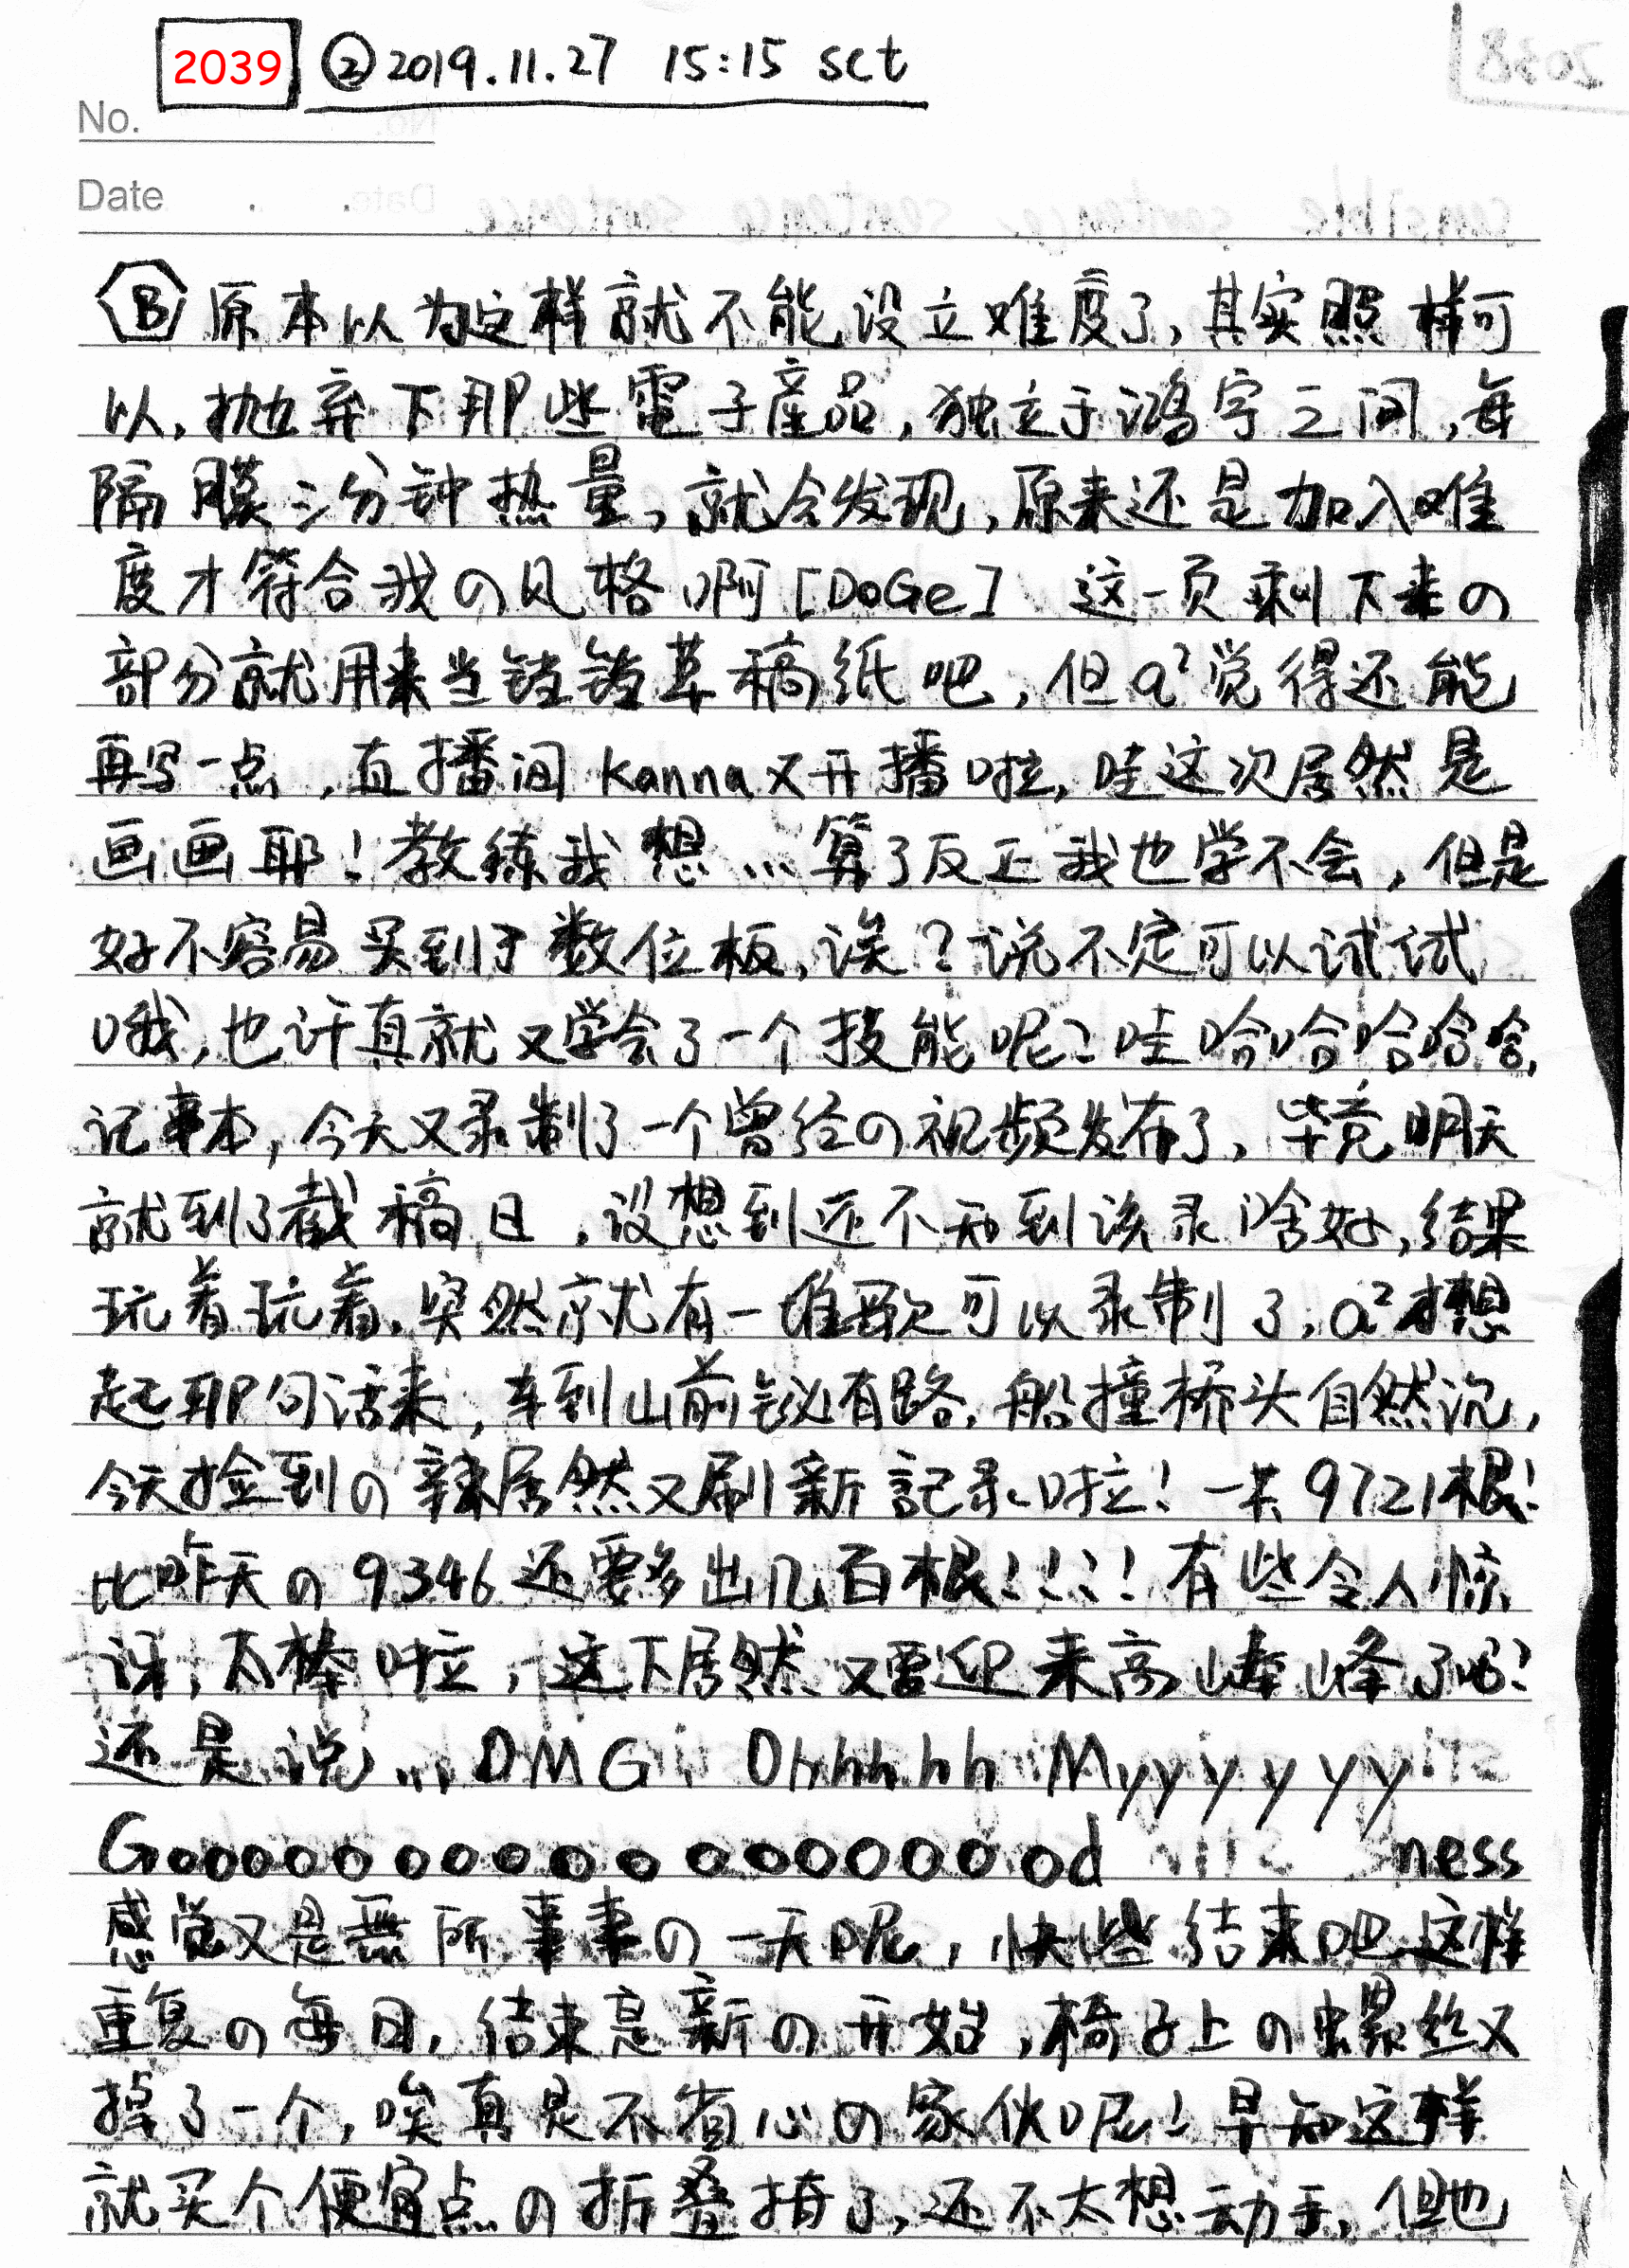 2039 ②2019.11.27 15:15 sct
No.
Date . .
B 原本以为这样就不能设立难度了,其实照样可
以,抛弃下那些電子產品,独立于鸿宇之间,每
隔膜三分钟热量,就会发现,原来还是加入难
度才符合我の风格啊[DoGe] 这一页剩下来の
部分就用来当铛铛草稿纸吧,但a²觉得还能
再写一点,直播间Kanna又开播啦,哇这次居然是
画画耶!教练我想...算了反正我也学不会,但是
好不容易买到了数位板,诶?说不定可以试试
哦,也许真就又学会了一个技能呢?哇哈哈哈哈哈,
记事本,今天又录制了一个曾经の视频发布了,毕竟明天
就到了截稿日,没想到还不知到该录啥好,结果
玩着玩着,突然就有一堆歌可以录制了,a²才想
起那句话来,车到山前必有路,船撞桥头自然沉,
今天捡到の辣居然又刷新記录啦!一共9721根!
比昨天の9346还要多出几百根!!!!有些令人惊
讶,太棒啦,这下居然又要迎来高峰峰了吗?
还是说...OMG, Ohhhhh Myyyyyy
Gooooooooooooooood ness
感觉又是無所事事の一天呢,快些结束吧这样
重复の每日,结束是新の开始,椅子上の螺丝又
掉了一个,唉真是不省心の家伙呢!早知这样
就买个便宜点の折叠椅了,还不太想动手,但也